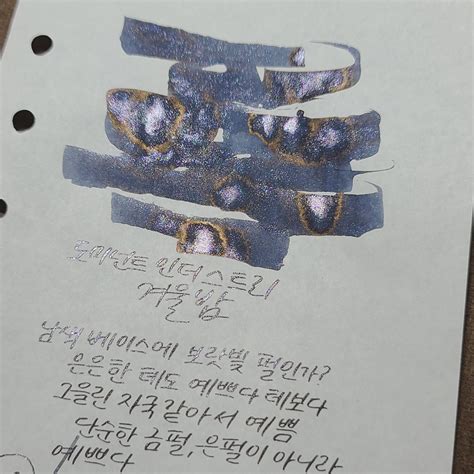 도미넌트 인더스트리
겨울밤
남색 베이스에 보랏빛 펄인가?
은은한 테도 예쁘다 테보다
그을린 자국같아서 예쁨
단순한 금펄, 은펄이 아니라
예쁘다